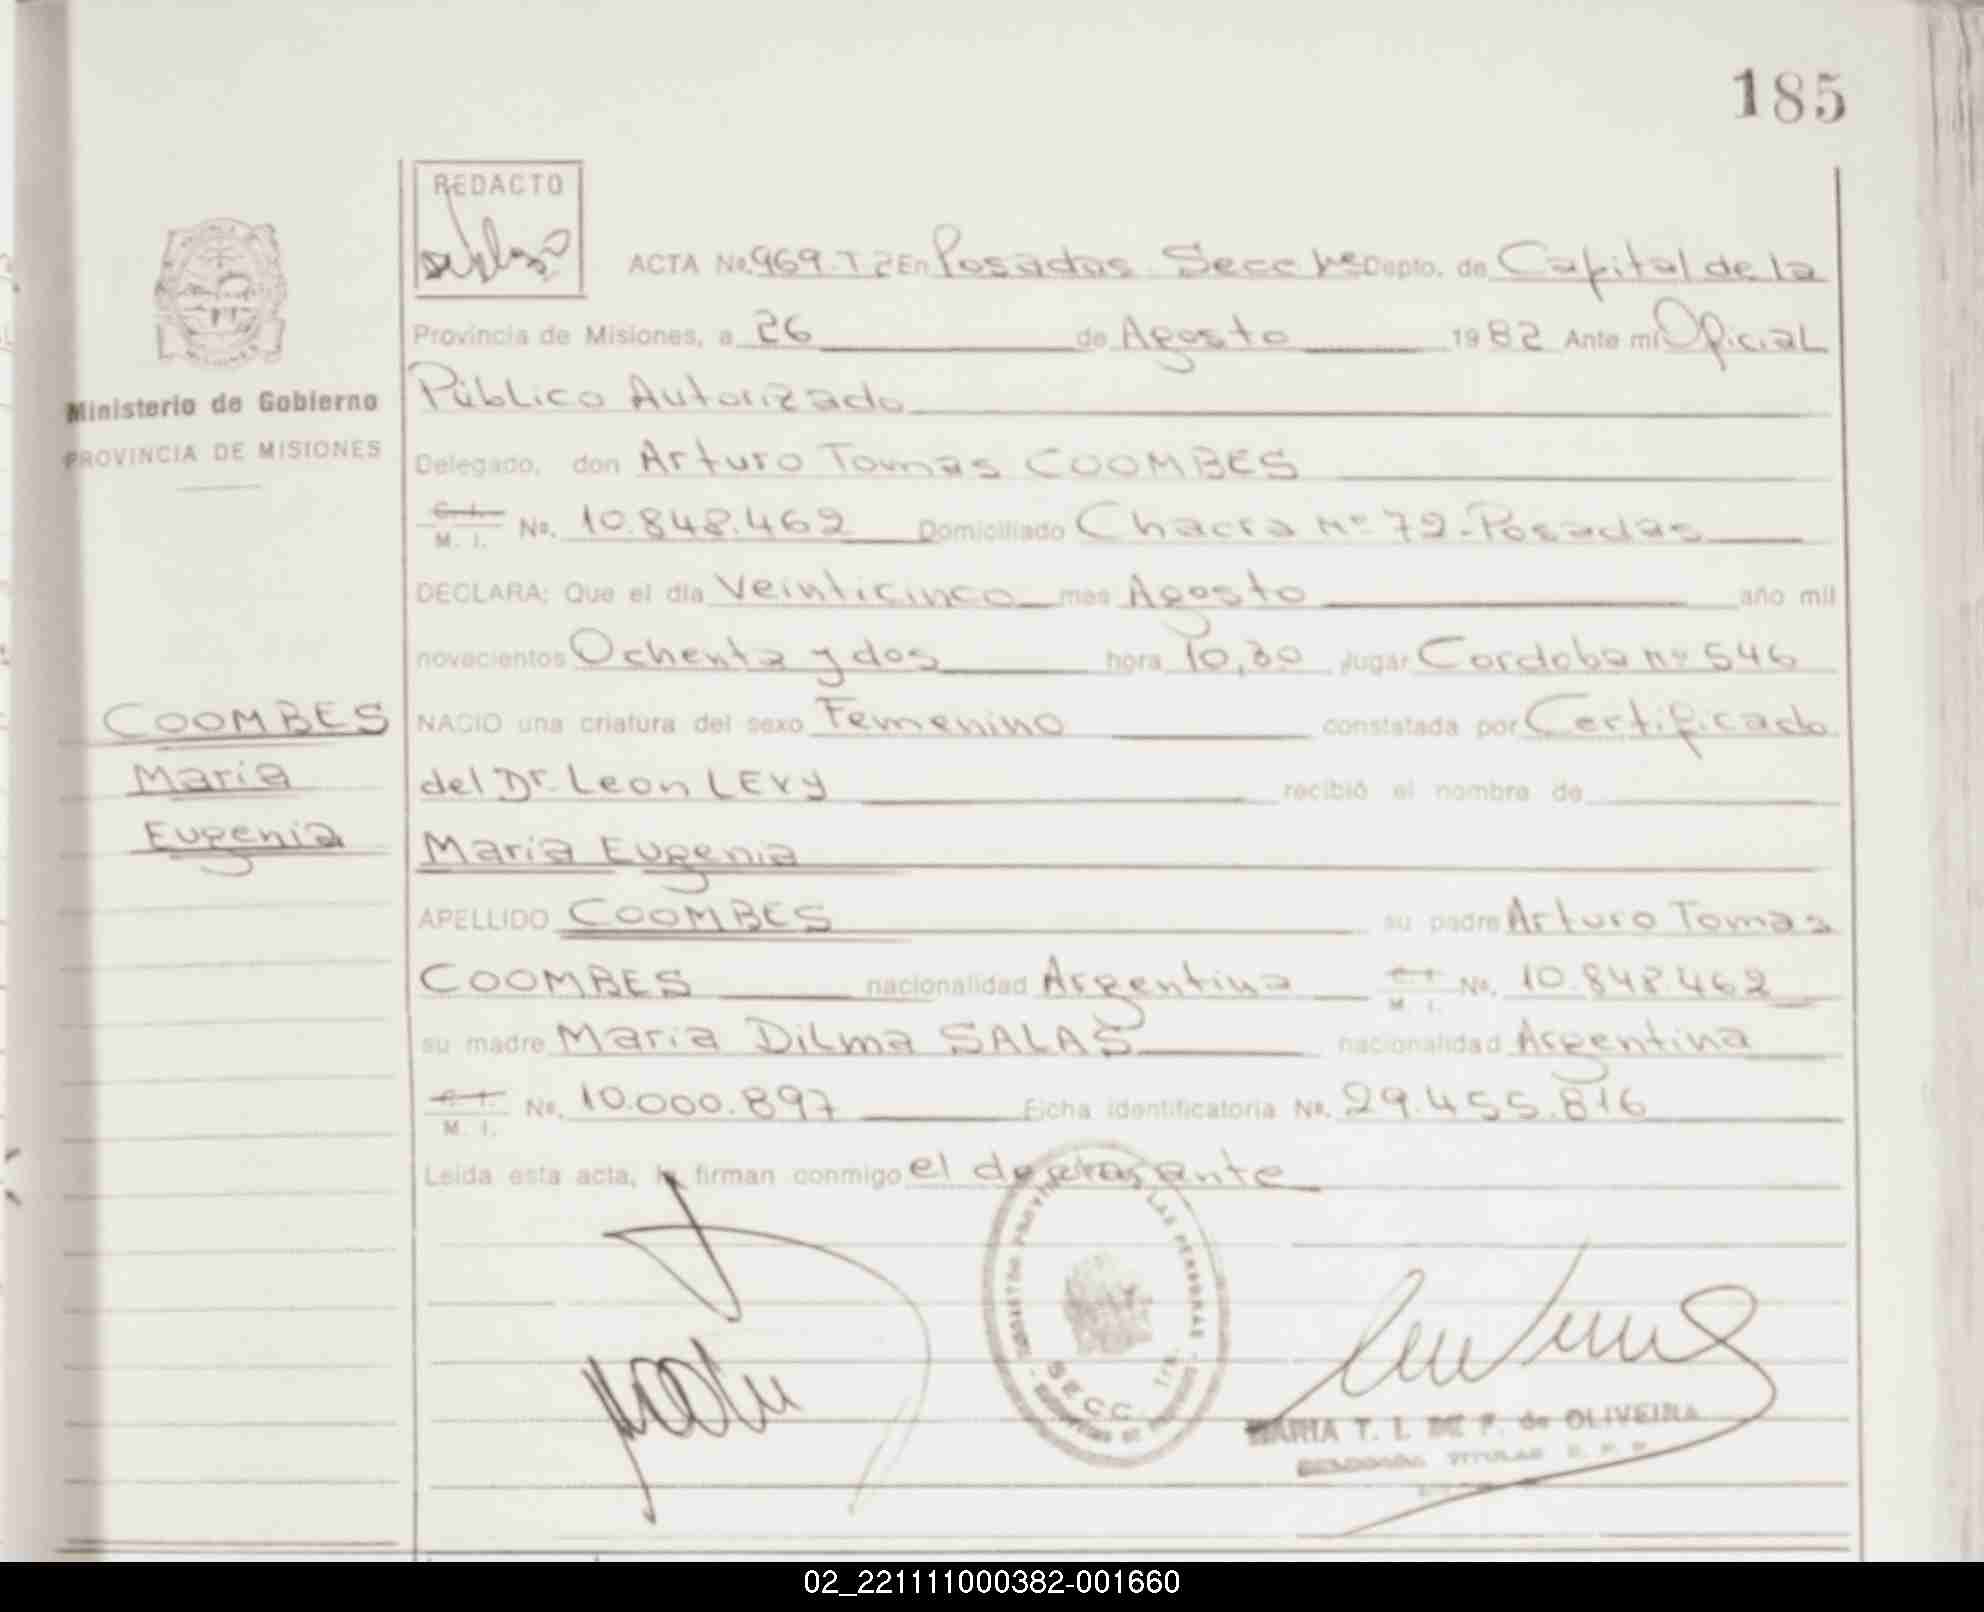 185
REDACTO
ACTA No. 969. T 2 En Posadas Secc 1ra Depto. de Capital de la
Provincia de Misiones, a 26 de Agosto 1982 Ante mi Oficial
Público Autorizado
Ministerio de Gobierno
PROVINCIA DE MISIONES
Delegado, don Arturo Tomas COOMBES
C. I. M. I. No. 10.848.462 Domiciliado Chacra Nº 72-Posadas
DECLARA: Que el día Veinticinco mes Agosto año mil
novecientos Ochenta y dos hora 10,30 lugar Cordoba nº 546
COOMBES
Maria
Eugenia
NACIO una criatura del sexo Femenino constatada por Certificado
del Dr. Leon LEVY recibió el nombre de
Maria Eugenia
APELLIDO COOMBES su padre Arturo Tomas
COOMBES nacionalidad Argentina C.I. M. I. No. 10.848.462
su madre Maria Dilma SALAS nacionalidad Argentina
C. I. M. I. No. 10.000.897 Ficha identificatoria No. 29.455.816
Leida esta acta, la firman conmigo el declarante
LAS PERSONAS
SECC. 1ra.
MARIA T. I. DE F. de OLIVEIRA
TITULAR
02_221111000382-001660